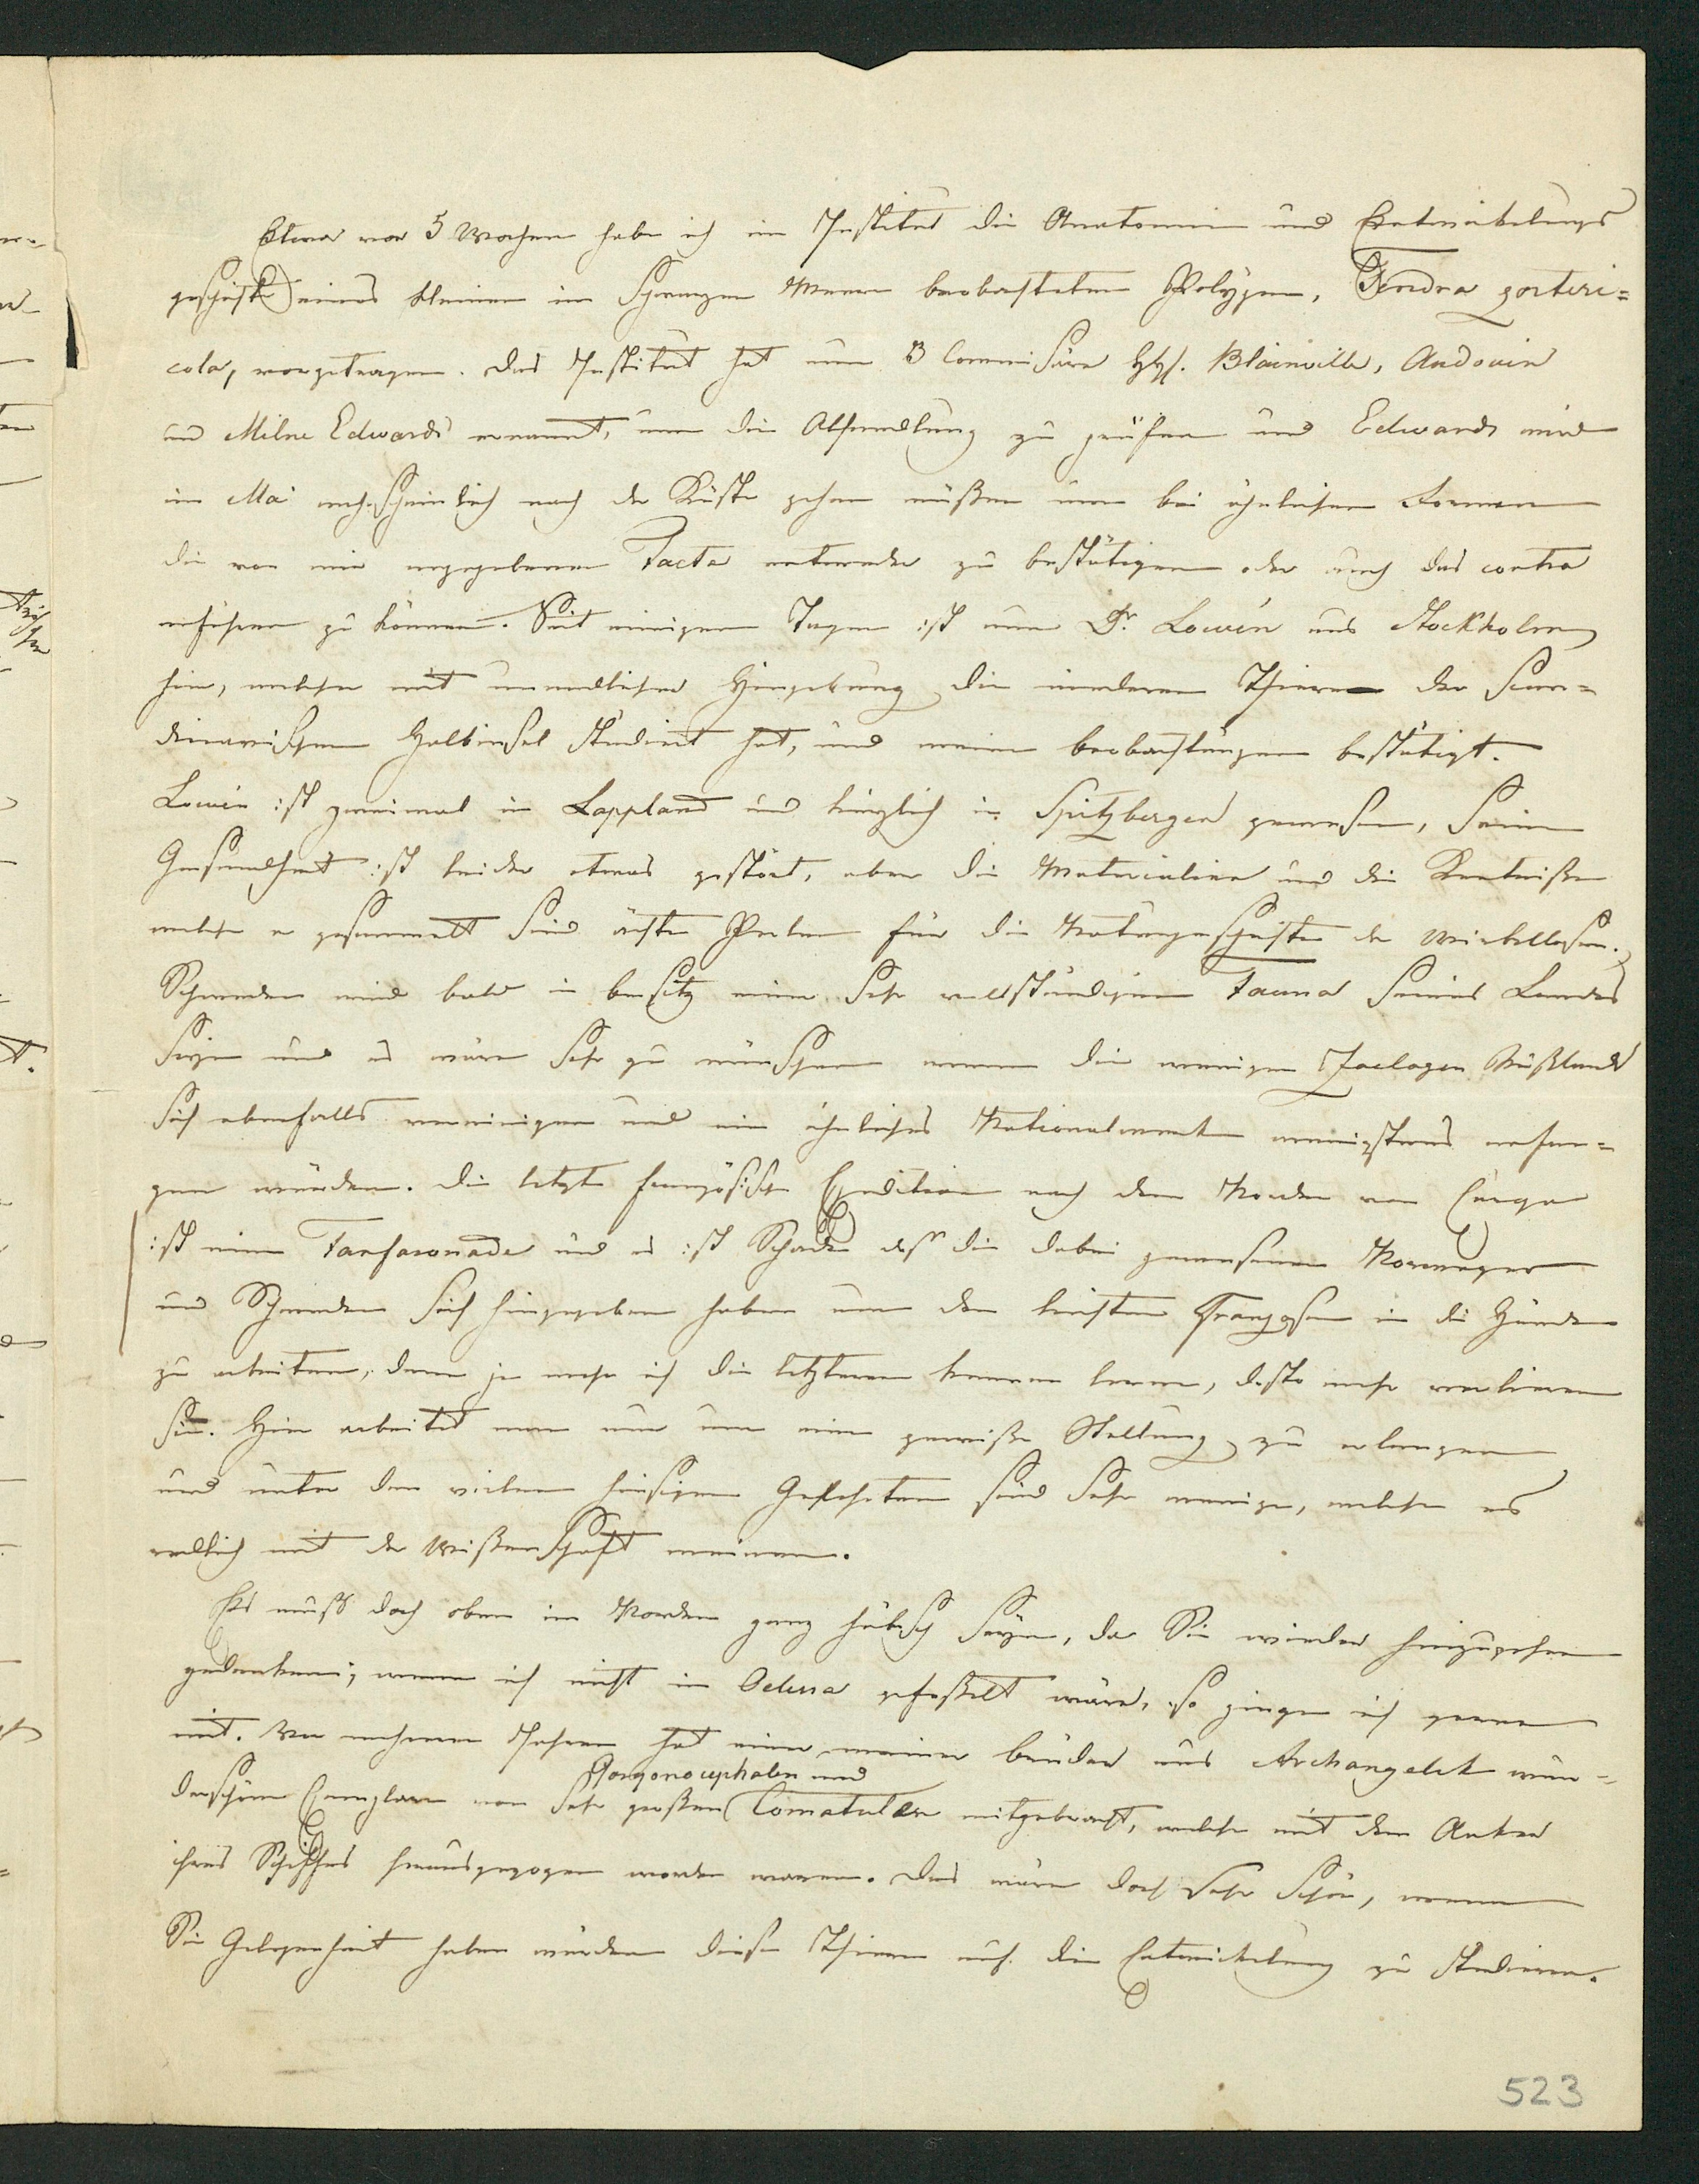 Etwa vor 5 Wochen habe ich im Institut die Anatomie und Entwickelungs
geschichte eines kleinen im Schwarzen Meere beobachteten Polypen, Tendra zosteri=
cola, vorgetragen. Das Institut hat nun 3 Commissäre HH. Blainville, Audouin
und Milne Edwards ernannt, um die Abhandlung zu prüfen und Edwards wird
im Mai wahrscheinlich nach der Küste gehen müßen um bei ähnlichen Formen
die von mir angegebenen Facta entweder zu bestätigen oder auch das contra
anführen zu können. Seit einigen Tagen ist nun Dr. Lowén aus Stockholm
hier, welcher mit unendlicher Hingebung die niederen Thiere der Scan=
dinavischen Halbinsel studirt hat, und meine Beobachtungen bestätigt.
Lowén ist zweimal in Lappland und kürzlich in Spitzbergen gewesen, seine
Gesundheit ist leider etwas gestört, aber die Materialien und die Kentniße
welche er gesammelt sind ächte Perlen für die Naturgeschichte der Wirbellosen.
Schweden wird bald in Besitz einer sehr vollständigen Fauna seines Landes
seyn und es wäre sehr zu wünschen wenn die wenigen Zoologen Rußlands
sich ebenfalls vereinigen und ein ähnliches Nationalwerk wenigstens anfan=
gen würden. Die letzte französische Expedition nach dem Norden von Europa
ist eine Fanfaronade und es ist Schade daß die dabei gewesenen Norweger
und Schweden sich hingegeben haben um den leichten Franzosen in die Hände
zu arbeiten, denn je mehr ich die letzteren kennen lerne, desto mehr verlieren
sie. Hier arbeitet man nur um eine gewiße Stellung zu erlangen
und unter den vielen hiesigen Gelehrten sind sehr wenige, welche es
redlich mit der Wißenschaft meinen.
Es muß doch oben im Norden ganz hübsch seyn, da Sie wieder hinzugehen
gedenken; wenn ich nicht in Odessa gefeßelt wäre, so ginge ich gerne
mit. Vor mehrern Jahren hat einer meiner Brüder aus Archangelsk wun=
Gorgonocephalen und
derschöne Exemplare von sehr großen Comatulen mitgebracht, welche mit dem Anker
ihres Schiffes heraufgezogen worden waren. Das wäre doch sehr schön, wenn
Sie Gelegenheit haben würden diese Thiere auf die Entwickelung zu studieren.
523